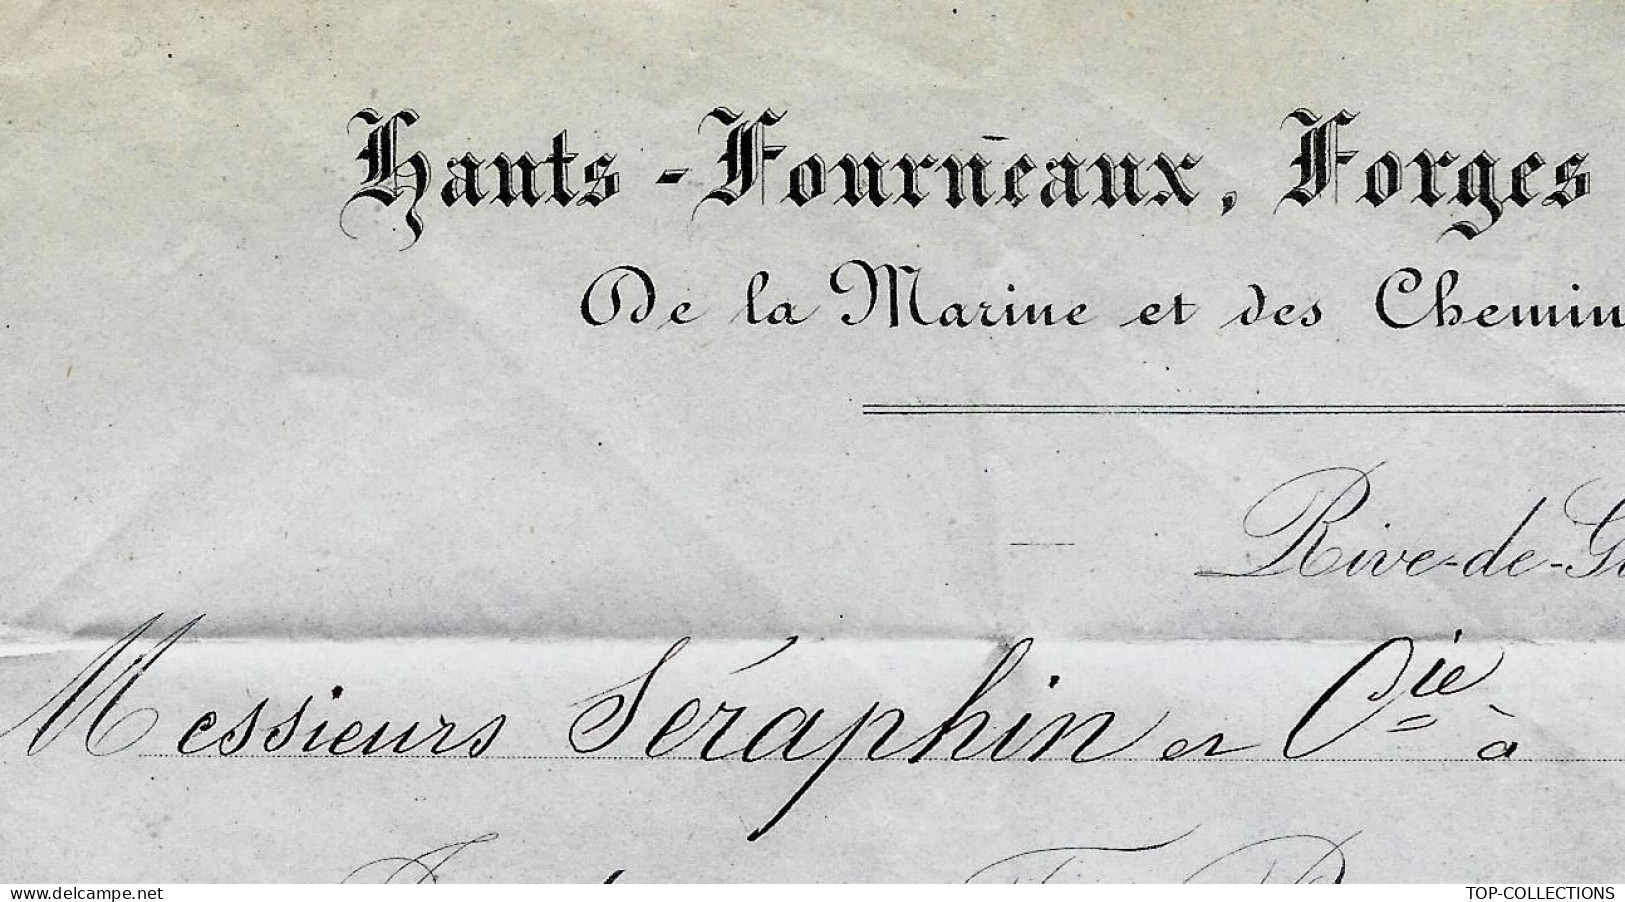 Hauts - Fourneaux, Forges
De la Marine et des Chemin
Rive-de-G
Messieurs Séraphin et Cie à
www.delcampe.net
TOP-COLLECTIONS